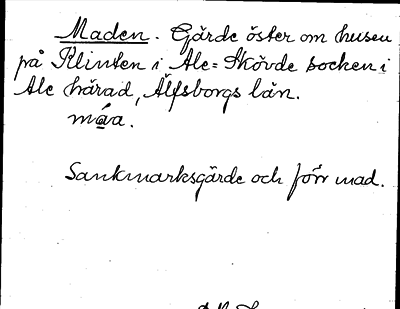 Maden. Gärde öster om husen
på Klinten i Ale=Skövde socken i
Ale härad, Älfsborgs län.
måva.
Sankmarksgärde och förr mad.